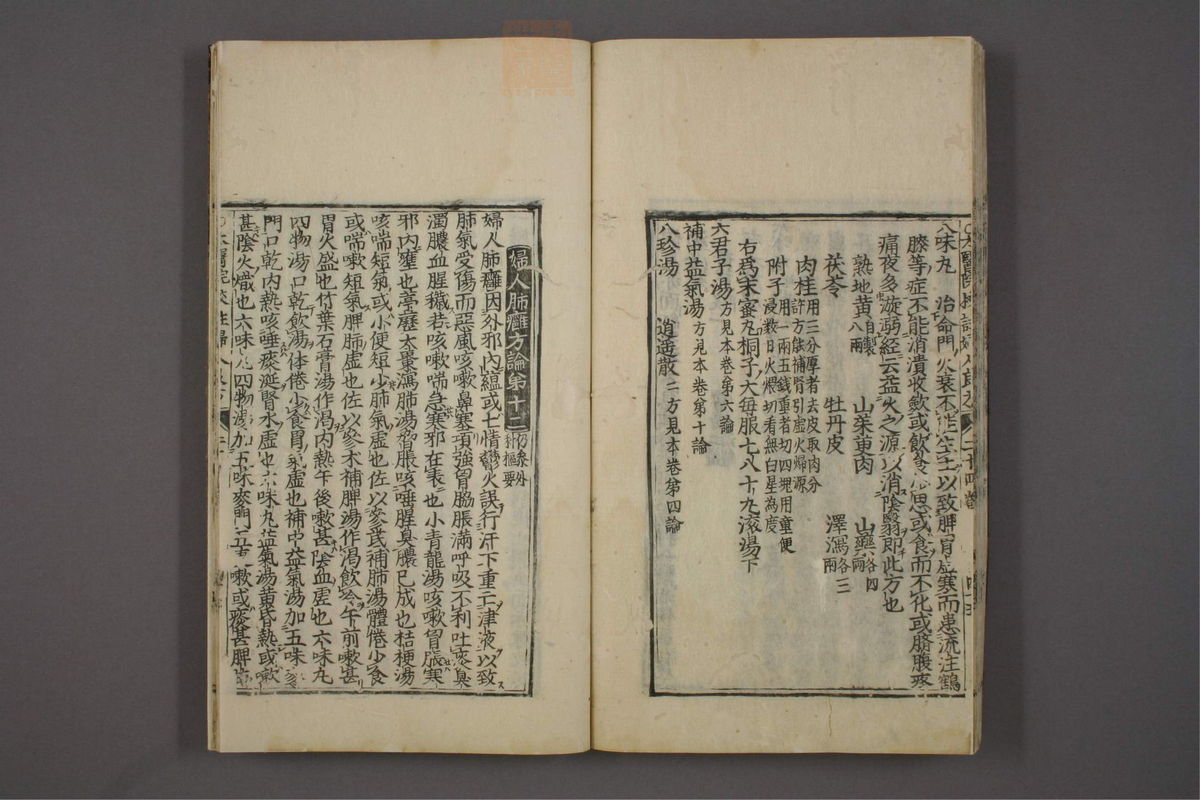 八味丸　治命門火衰不能生土以致脾胃虛寒而患流注鶴
膝等症不能消潰收斂或飲食不思或食而不化或臍腹疼
痛夜多漩溺經云益火之源以消陰翳即此方也
熟地黃自製八兩　山茱萸肉　山藥各四兩
茯苓　牡丹皮　澤瀉各三兩
肉桂用三分厚者去皮取肉分許方能補腎引虛火歸源
附子用一兩五錢重者切四塊用童便浸數日火煨切看無白星為度
右爲末蜜丸桐子大每服七八十丸滾湯下
六君子湯方見本卷第六論
補中益氣湯方見本卷第十論
八珍湯　逍遙散二方見本卷第四論
婦人肺癰方論第十二
婦人肺癰因外邪內蘊或七情鬱火誤行汗下重亡津液以致
肺氣受傷而惡風咳嗽鼻塞項強胷脇脹滿呼吸不利吐痰臭
濁膿血腥穢若咳嗽喘急寒邪在表也小青龍湯咳嗽胷脹寒
邪內壅也葶藶大棗瀉肺湯胷脹咳唾腥臭膿已成也桔梗湯
咳喘短氣或小便短少肺氣虛也佐以參芪補肺湯體倦少食
或喘嗽短氣脾肺虛也佐以參朮補脾湯作渴飲冷午前嗽甚
胃火盛也竹葉石膏湯作渴內熱午後嗽甚陰血虛也六味丸
四物湯口乾飲湯体倦少食胃氣虛也補中益氣湯加五味
門口乾內熱咳唾痰涎腎水虛也六味丸益氣湯黃昏熱或嗽
甚陰火熾也六味丸四物湯加五味麥門五更嗽或痰甚脾